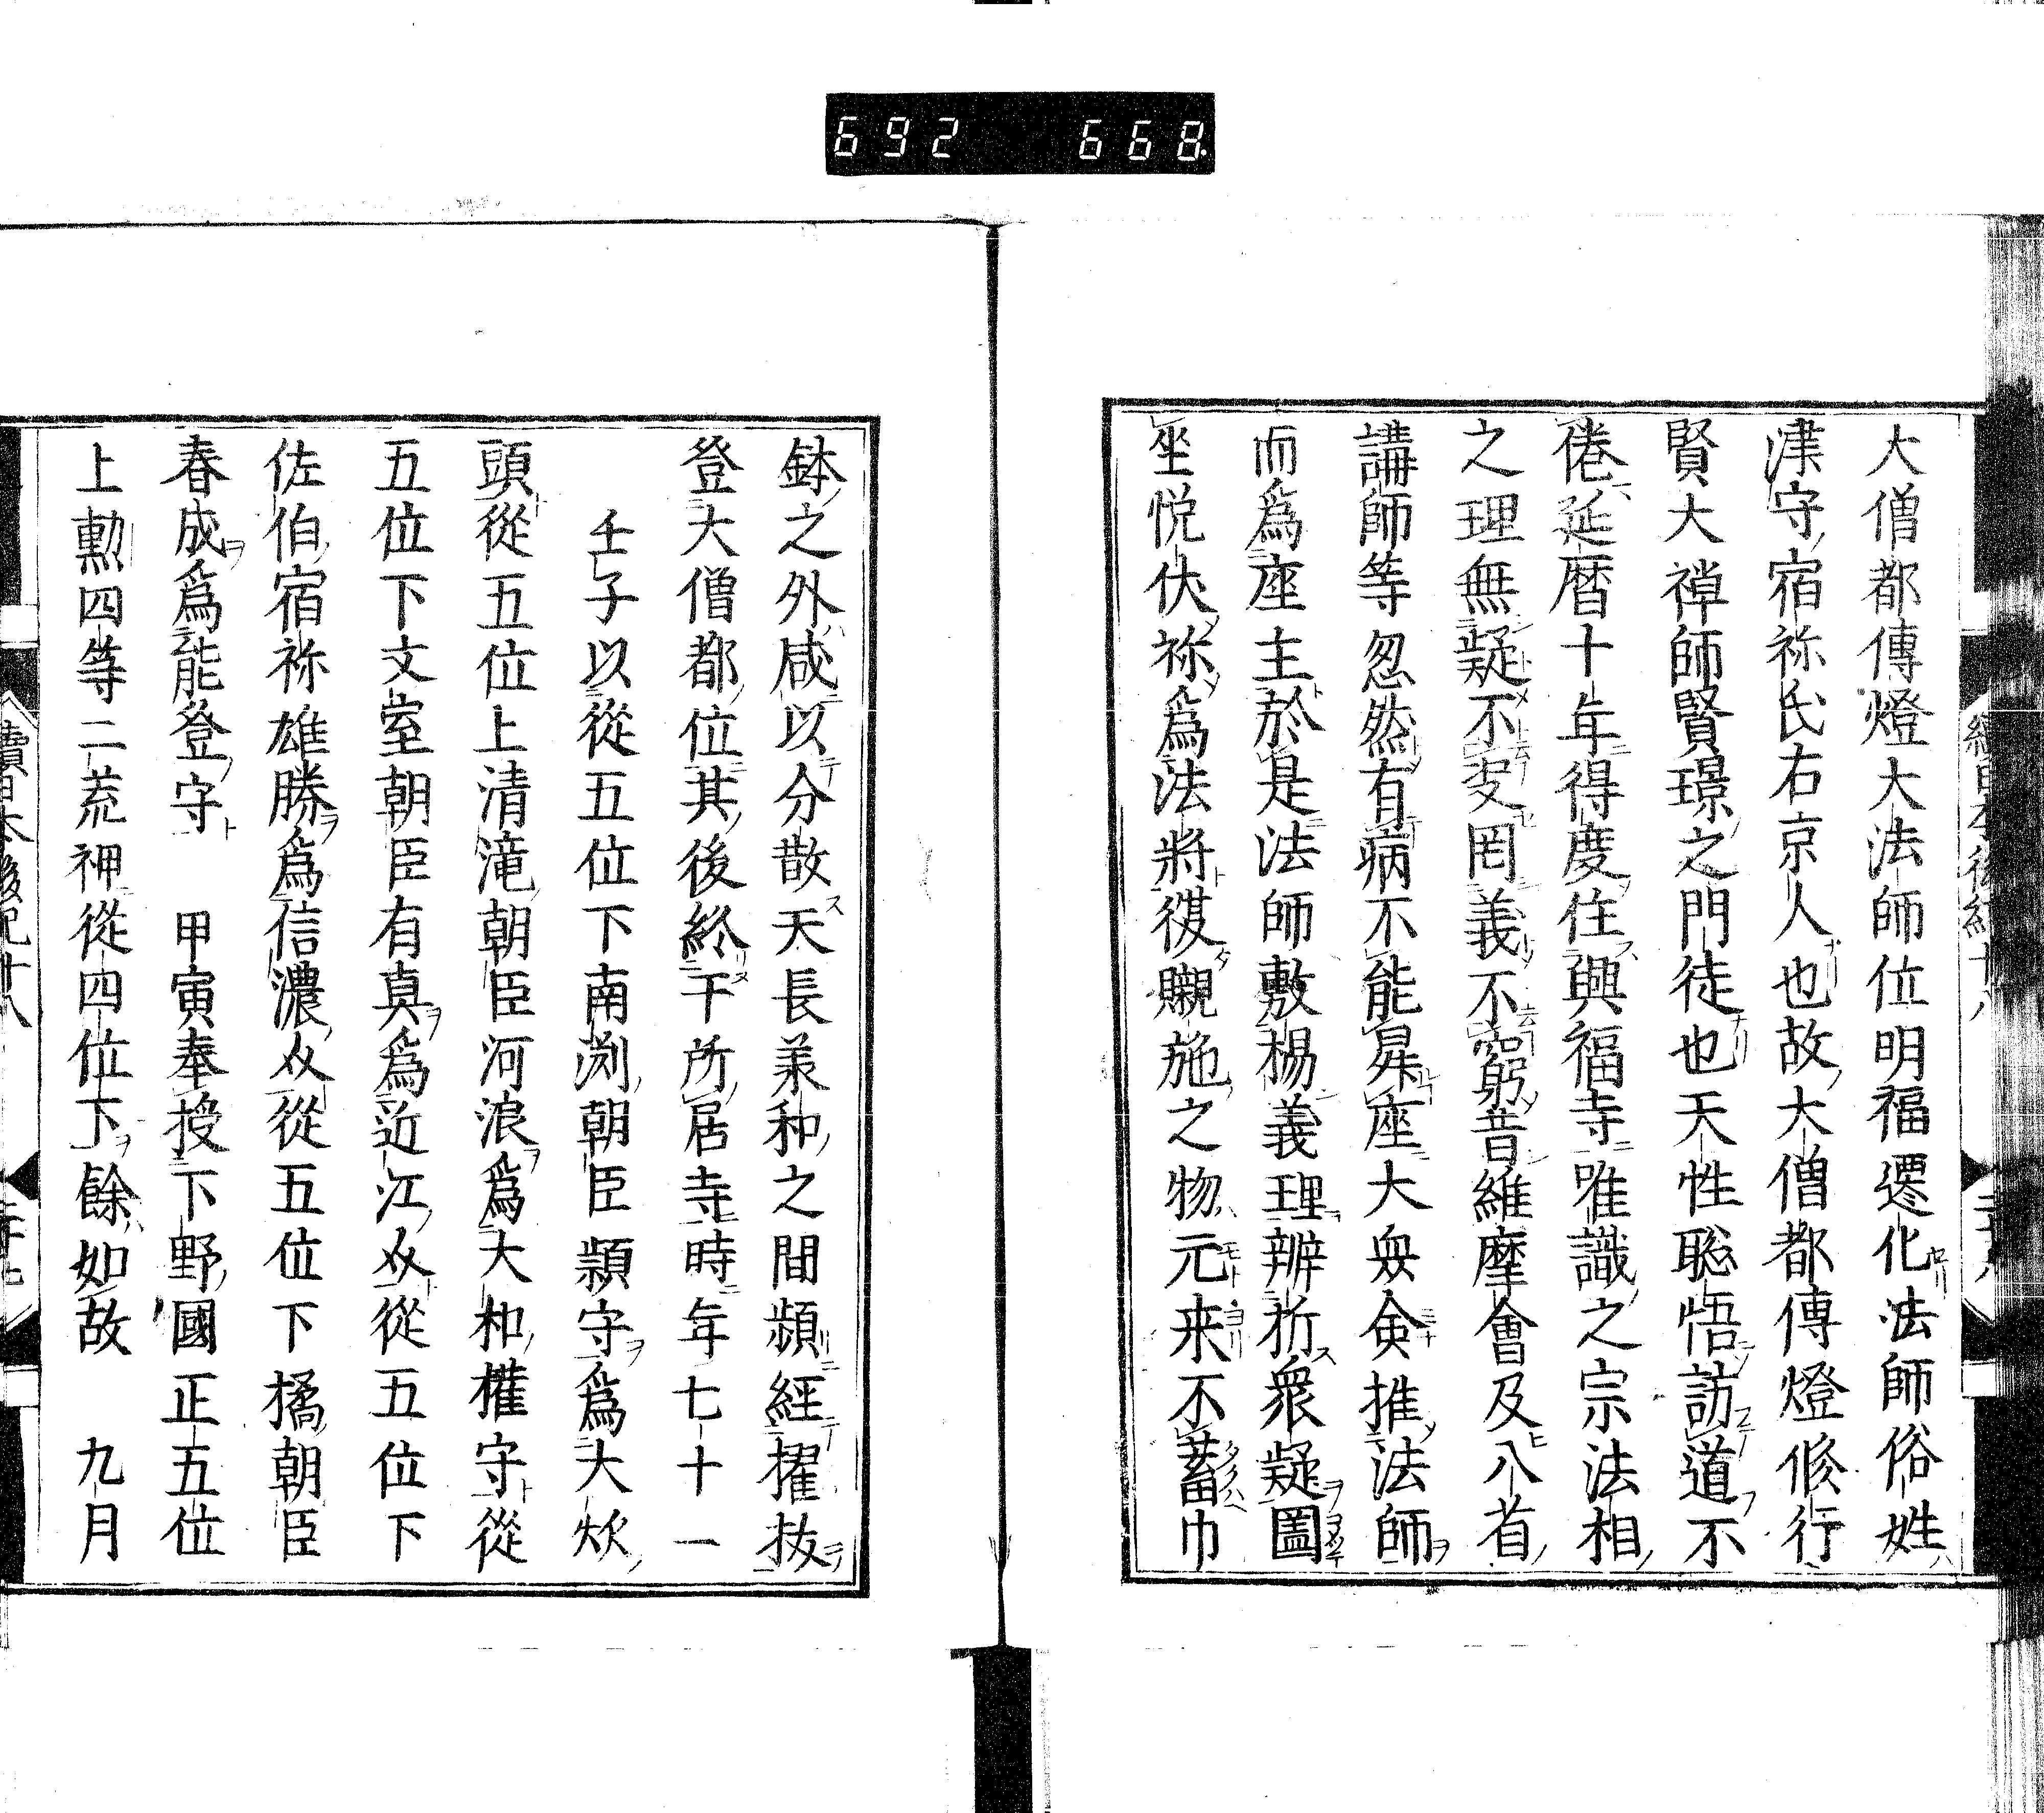 692 668.
大僧都傳燈大法師位明福遷化法師俗姓
津守宿祢氏右京人也故大僧都傳燈修行
賢大禅師賢璟之門徒也天性聡悟訪道不
倦延暦十年得度住興福寺唯識之宗法相
之理無疑不叏罔義不窮昔維摩會及八省
講師等忽然有病不能昇座大衆僉推法師
而爲座主於是法師敷楊義理辨析衆疑圖
坐悦伏祢爲法將彼嚫施之物元来不蓄巾
鉢之外咸以分散天長承和之間頻經擢抜
登大僧都位其後終于所居寺時年七十一
壬子以從五位下南渕朝臣頴守爲大炊
頭從五位上清滝朝臣河浪爲大和權守從
五位下文室朝臣有真爲近江介從五位下
佐伯宿祢雄勝爲信濃介從五位下橘朝臣
春成爲能登守 甲寅奉授下野國正五位
上勲四等二荒神從四位下餘如故 九月
續日本後紀十八